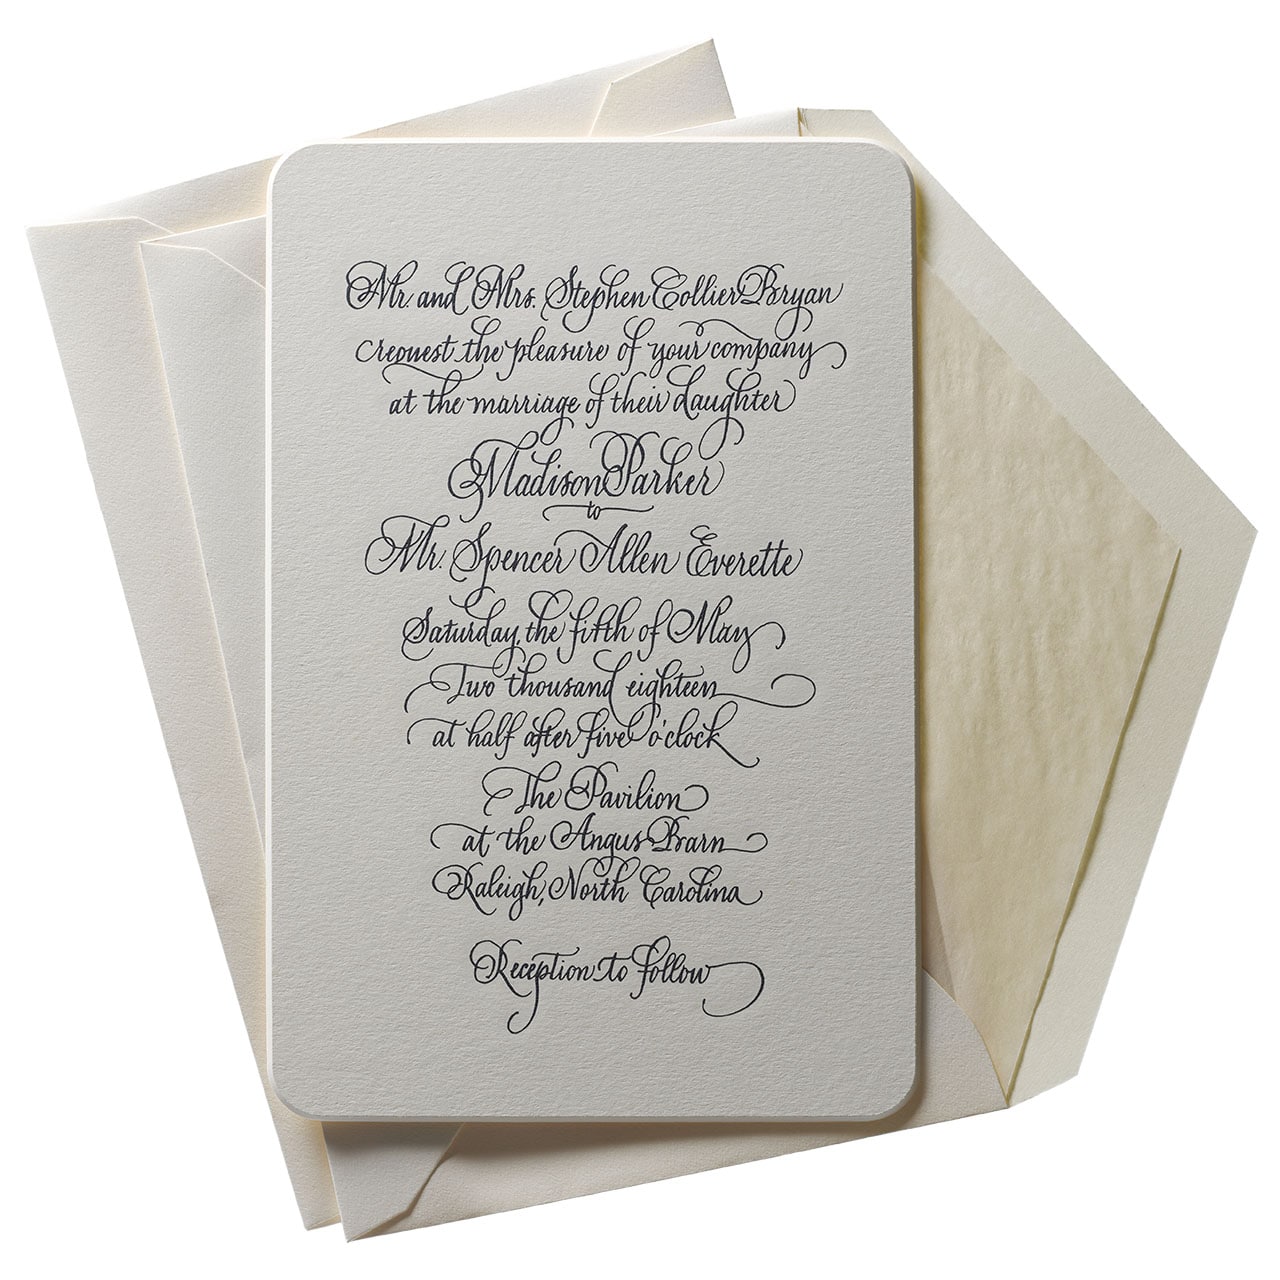 Mr. and Mrs. Stephen Collier Bryan
request the pleasure of your company
at the marriage of their daughter
Madison Parker
to
Mr. Spencer Allen Everette
Saturday, the fifth of May
Two thousand eighteen
at half after five o'clock
The Pavilion
at the Angus Barn
Raleigh, North Carolina
Reception to follow